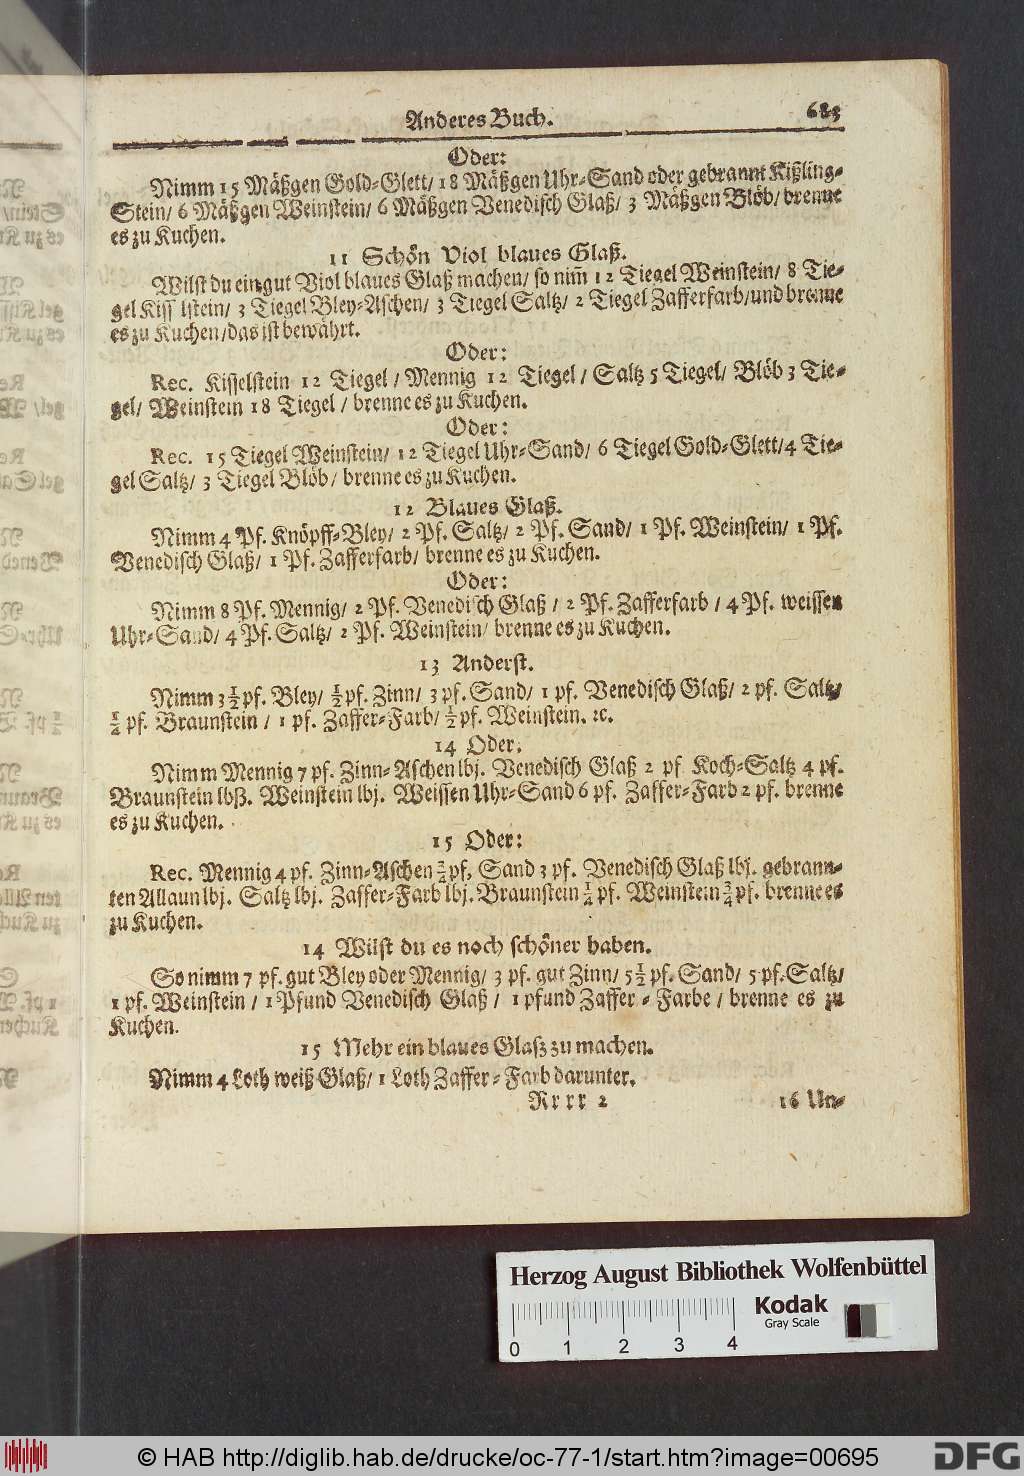 Anderes Buch. 683
Oder:
Nimm 15 Mäßgen Gold-Glett/ 18 Mäßgen Uhr-Sand oder gebrannt Kißling-
Stein/ 6 Mäßgen Weinstein/ 6 Mäßgen Venedisch Glaß/ 3 Mäßgen Blöb/ brenne
es zu Kuchen.
11 Schön Viol blaues Glaß.
Wilst du ein gut Viol blaues Glaß machen/ so nim̄ 12 Tiegel Weinstein/ 8 Tie-
gel Kiss lstein/ 3 Tiegel Bley-Aschen/ 3 Tiegel Saltz/ 2 Tiegel Zafferfarb/und brenne
es zu Kuchen/das ist bewährt.
Oder:
Rec. Kisselstein 12 Tiegel / Mennig 12 Tiegel / Saltz 5 Tiegel/ Blöb 3 Tie-
gel/ Weinstein 18 Tiegel / brenne es zu Kuchen.
Oder:
Rec. 15 Tiegel Weinstein/ 12 Tiegel Uhr-Sand/ 6 Tiegel Gold-Glett/4 Tie-
gel Saltz/ 3 Tiegel Blöb/ brenne es zu Kuchen.
12 Blaues Glaß.
Nimm 4 Pf. Knöpff-Bley/ 2 Pf. Saltz/ 2 Pf. Sand/ 1 Pf. Weinstein/ 1 Pf.
Venedisch Glaß/ 1 Pf. Zafferfarb/ brenne es zu Kuchen.
Oder:
Nimm 8 Pf. Mennig/ 2 Pf. Venedisch Glaß / 2 Pf. Zafferfarb / 4 Pf. weissen
Uhr-Sand/ 4 Pf. Saltz/ 2 Pf. Weinstein/ brenne es zu Kuchen.
13 Anderst.
Nimm 3 1/2 pf. Bley/ 1/2 pf. Zinn/ 3 pf. Sand/ 1 pf. Venedisch Glaß/ 2 pf. Saltz/
1/2 pf. Braunstein / 1 pf. Zaffer-Farb/ 1/2 pf. Weinstein. ꝛc.
14 Oder.
Nimm Mennig 7 pf. Zinn-Aschen lbj. Venedisch Glaß 2 pf Koch-Saltz 4 pf.
Braunstein lbß. Weinstein lbj. Weissen Uhr-Sand 6 pf. Zaffer-Farb 2 pf. brenne
es zu Kuchen.
15 Oder:
Rec. Mennig 4 pf. Zinn-Aschen 3/4 pf. Sand 3 pf. Venedisch Glaß lbj. gebrann-
ten Allaun lbj. Saltz lbj. Zaffer-Farb lbj. Braunstein 1/4 pf. Weinstein 3/4 pf. brenne es
zu Kuchen.
14 Wilst du es noch schöner haben.
So nimm 7 pf. gut Bley oder Mennig/ 3 pf. gut Zinn/ 5 1/2 pf. Sand/ 5 pf. Saltz/
1 pf. Weinstein / 1 Pfund Venedisch Glaß / 1 pfund Zaffer-Farbe / brenne es zu
Kuchen.
15 Mehr ein blaues Glaß zu machen.
Nimm 4 Loth weiß Glaß/ 1 Loth Zaffer-Farb darunter.
Rrrr 2 16 Un-
Herzog August Bibliothek Wolfenbüttel
Kodak
Gray Scale
0 1 2 3 4
© HAB http://diglib.hab.de/drucke/oc-77-1/start.htm?image=00695
DFG